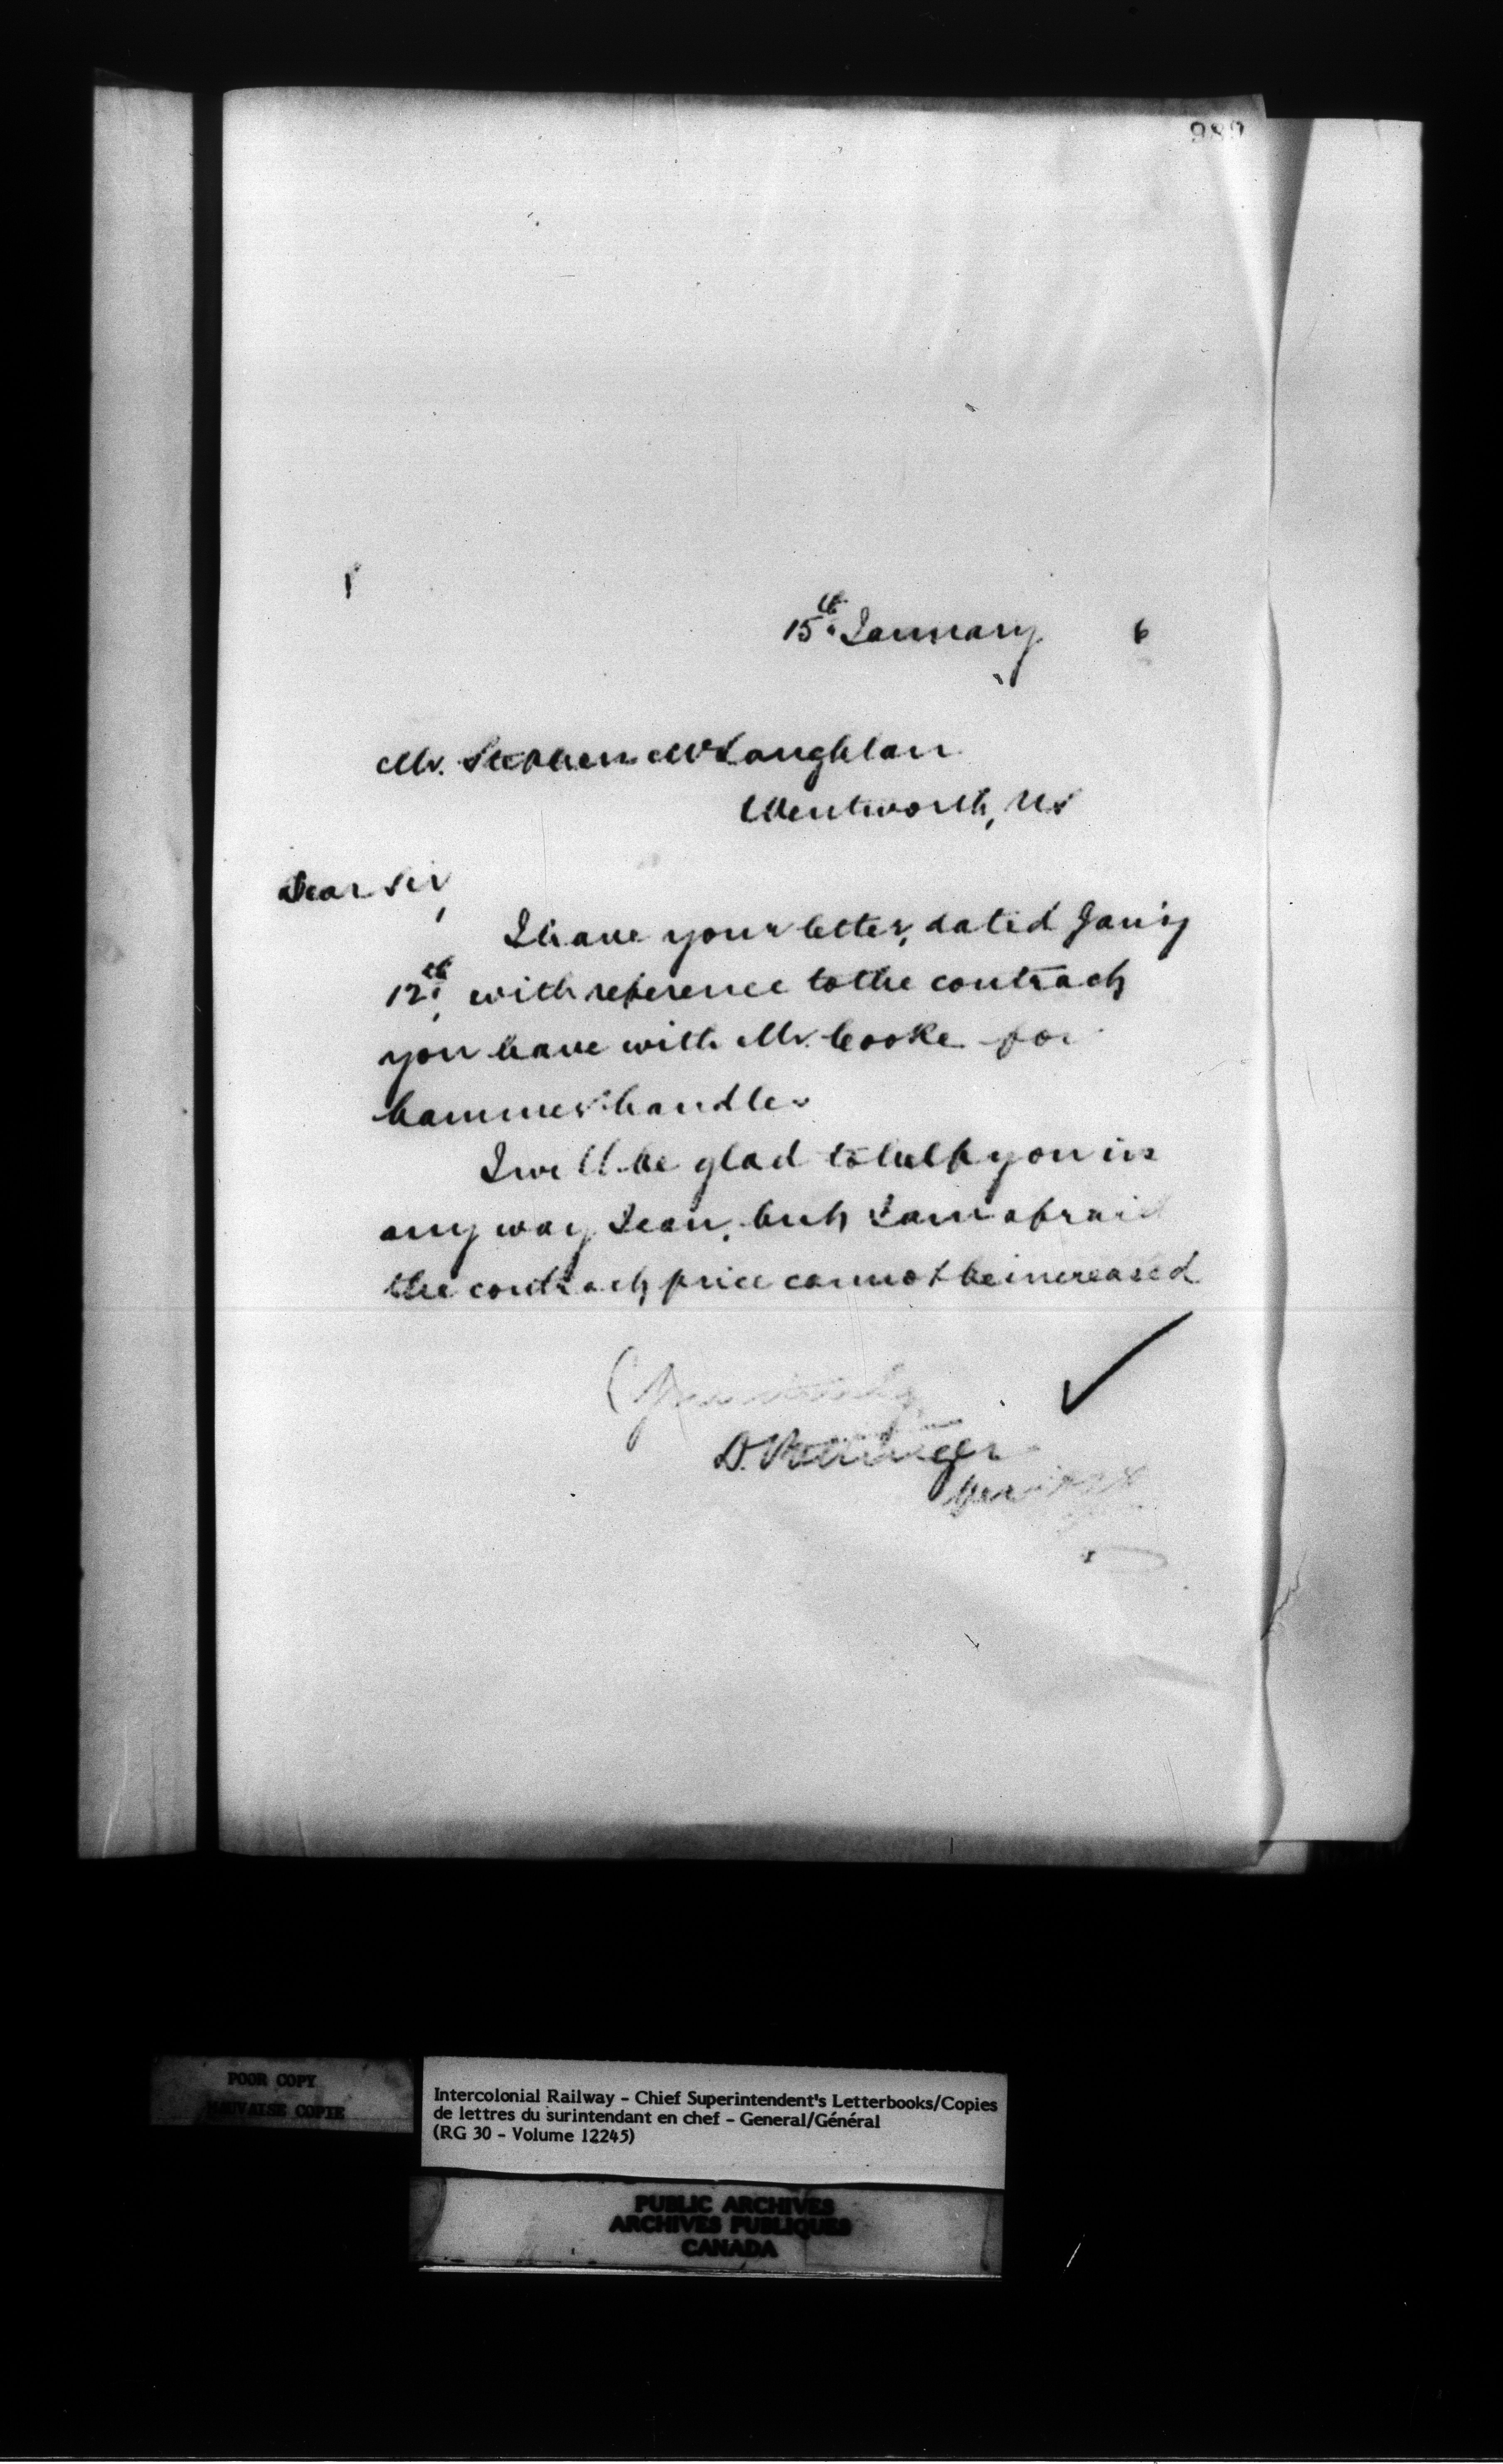 989
15th January 6
Mr. Stephen McLaughlan
Wentworth, NS
Dear Sir,
I have your letter, dated Jan'y
12th, with reference to the contract
you have with Mr. Cooke for
hammer handles
I will be glad to help you in
any way I can, but I am afraid
the contract price cannot be increased
Yours truly
D. Pottinger
POOR COPY
MAUVAISE COPIE
Intercolonial Railway - Chief Superintendent's Letterbooks/Copies
de lettres du surintendant en chef - General/Général
(RG 30 - Volume 12245)
PUBLIC ARCHIVES
ARCHIVES PUBLIQUES
CANADA